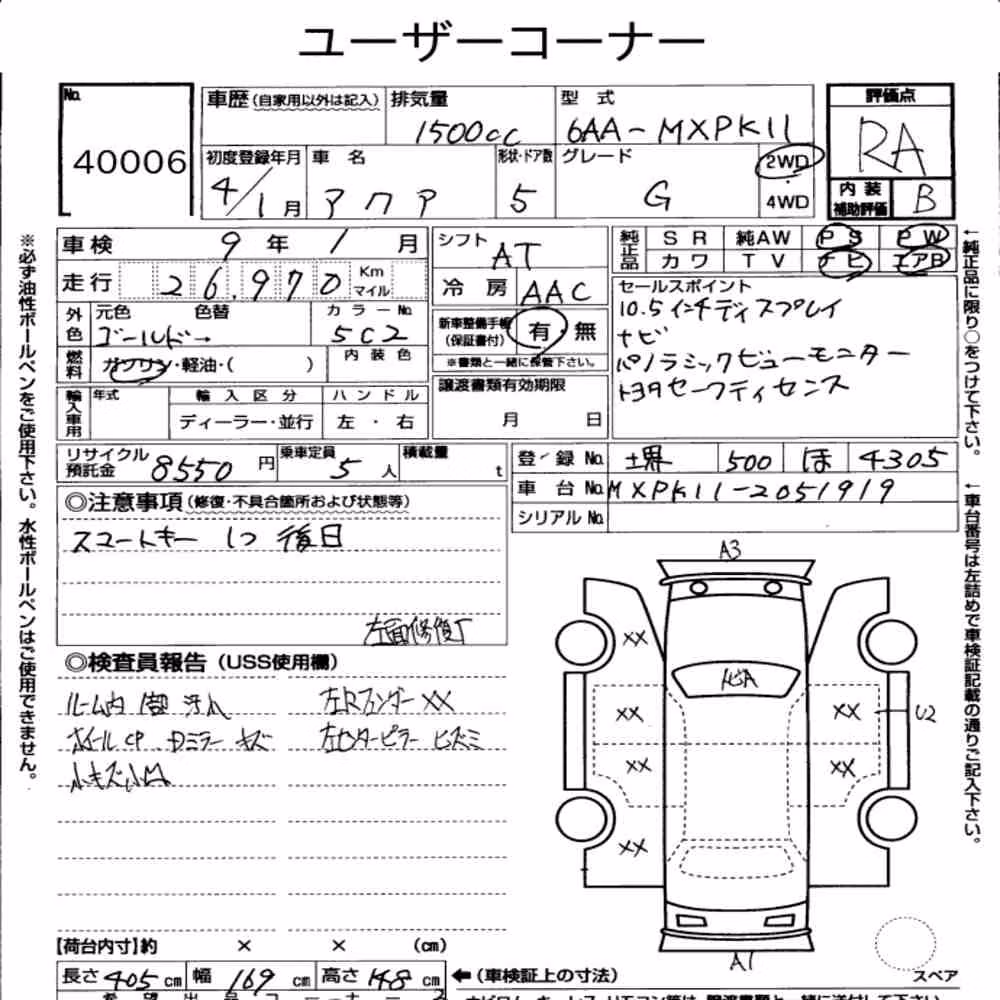 ユーザーコーナー
No. 40006
車歴 (自家用以外は記入) 排気量 1500cc 型式 6AA-MXPK11
評価点 RA
初度登録年月 4/1月 車名 アクア 形状・ドア数 5 グレード G 2WD・4WD
内装補助評価 B
車検 9年 1月
走行 26,970 Km マイル
シフト AT
冷房 AAC
純正品 SR 純AW PS PW
カワ TV ナビ エアB
外色 元色 ゴールド→ 色替 カラーNo. 5C2
燃料 ガソリン・軽油・( ) 内装色
新車整備手帳(保証書付) 有・無
※書類と一緒に保管下さい。
セールスポイント
10.5インチディスプレイ
ナビ
パノラミックビューモニター
トヨタセーフティセンス
輸入車用 年式 輸入区分 ハンドル
ディーラー・並行 左・右
譲渡書類有効期限
月 日
リサイクル預託金 8550円 乗車定員 5人 積載量 t
登録No. 堺 500 ほ 4305
車台No. MXPK11-2051919
シリアルNo.
◎注意事項(修復・不具合箇所および状態等)
スマートキー 1つ 後日
左面修復
◎検査員報告(USS使用欄)
ルーム内
ホイールCP ドミラーキズ
小キズ小凹
左Rフェンダー XX
左センターピラー ヒズミ
A3
XX
XX
XX
XX
XX
XX
U2
A1
スペア
【荷台内寸】約 × × (cm)
長さ 405cm 幅 169cm 高さ 148cm
←(車検証上の寸法)
※必ず油性ボールペンをご使用下さい。水性ボールペンはご使用できません。
←純正品に限り○をつけて下さい。
←車台番号は左詰めで車検証記載の通りご記入下さい。